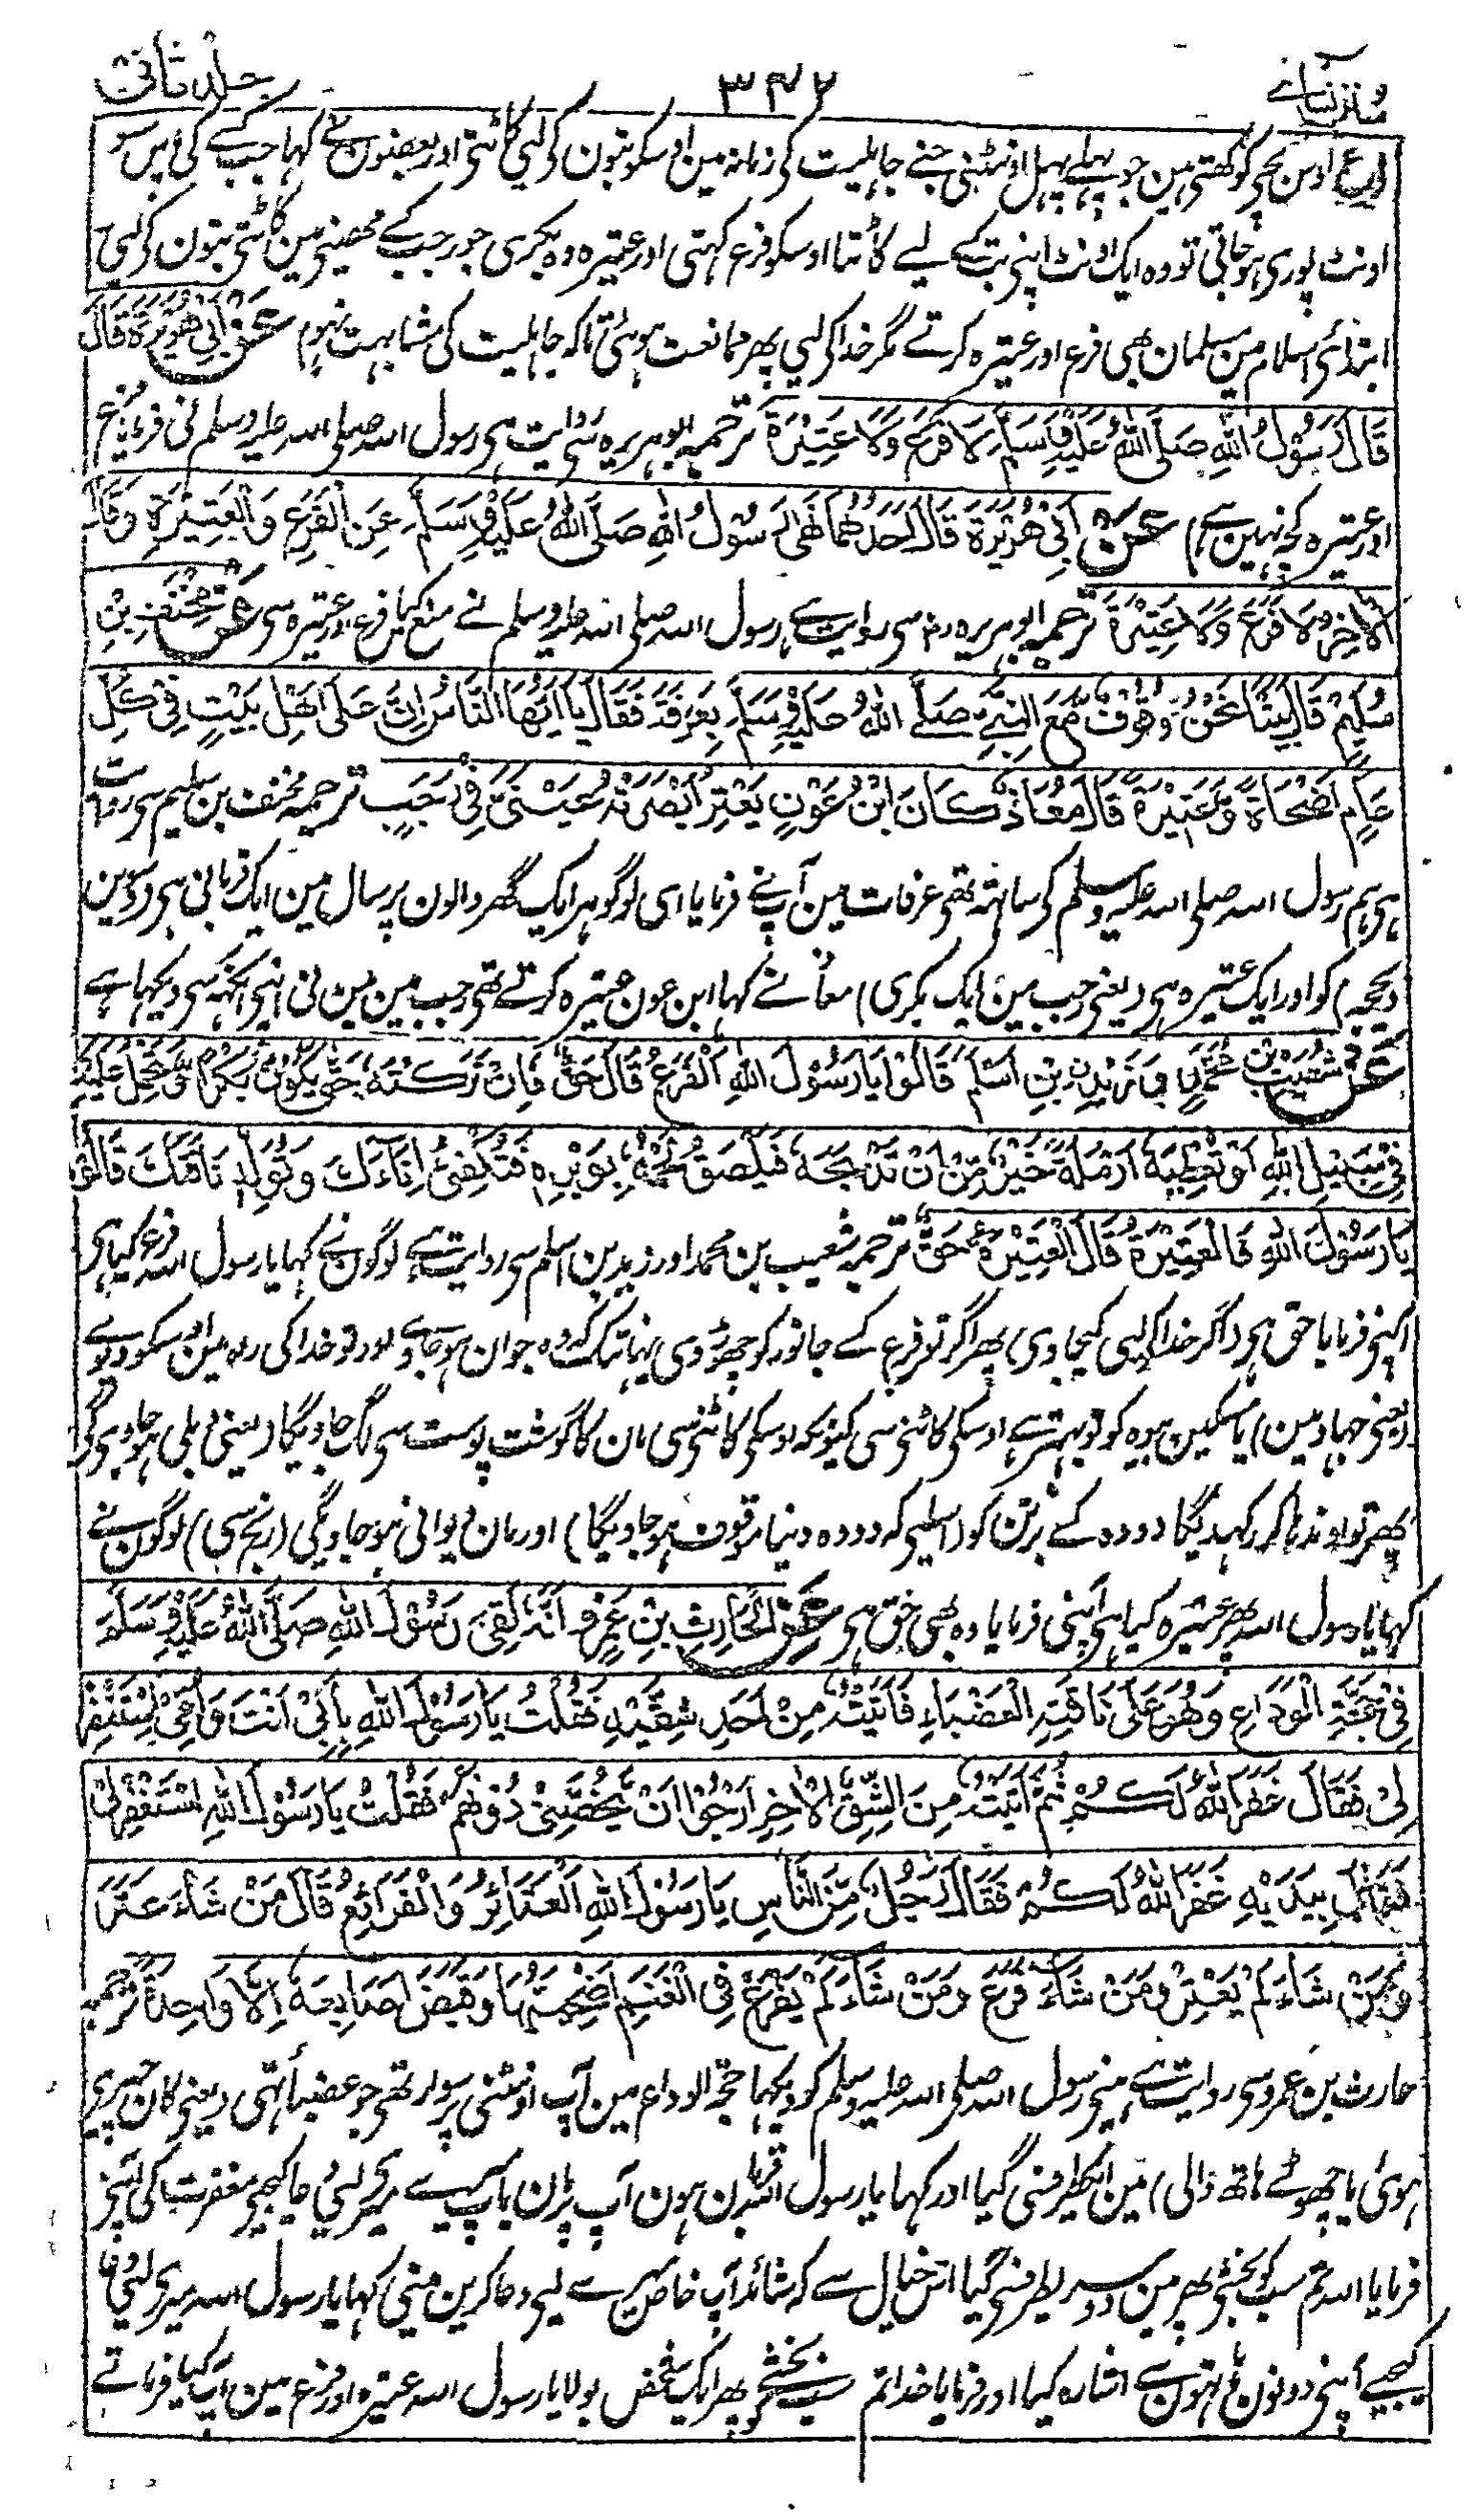 سنن نسائے ٣٤٢ جلد ثانی
فرع اوس بچی کو کھتی ہین جو پہلے پہل اونٹنی جنے جاہلیت کی زمانہ مین اوسکو بتون کی لیی کاٹتی اور بعضون نے کہا جب کسے کی پاس سو
اونٹ پوری ہو جاتی تو وہ ایک اونٹ اپنی بت کے لیے کاٹتا اوسکو فرع کہتی اور عتیرہ وہ بکری جو رجب کے مھینی مین کاٹتی بتون کی لیی
ابتدای اسلام مین مسلمان بھی فرع اور عتیرہ کرتے مگر خدا کی لیی پھر ممانعت ہوئی تاکہ جاہلیت کی مشابہت نہو عَنْ اَبِیْ هُرَیْرَةَ قَالَ
قَالَ رَسُوْلُ اللهِ صَلَّی اللهُ عَلَیْهِ وَسَلَّمَ لَا فَرَعَ وَلَا عَتِیْرَةَ ترجمہ ابو ہریرہ سی روایت ہی رسول اللہ صلی اللہ علیہ وسلم نی فرمایا فرع
اور عتیرہ کچھ نہین ہے) عَنْ اَبِیْ هُرَیْرَةَ قَالَ اَحَدُهُمَا نَهٰی رَسُوْلُ اللهِ صَلَّی اللهُ عَلَیْهِ وَسَلَّمَ عَنِ الْفَرَعِ وَالْعَتِیْرَةِ وَقَالَ
الْاٰخَرُ لَا فَرَعَ وَلَا عَتِیْرَةَ ترجمہ ابو ہریرہ رض سی روایت ہے رسول اللہ صلی اللہ علیہ وسلم نے منع کیا فرع اور عتیرہ سی عَنْ مِخْنَفِ بْنِ
سُلَیْمٍ قَالَ بَیْنَا نَحْنُ وُقُوْفٌ مَّعَ النَّبِیِّ صَلَّے اللهُ عَلَیْهِ وَسَلَّمَ بِعَرَفَةَ فَقَالَ یَا اَیُّهَا النَّاسُ اِنَّ عَلٰی اَهْلِ بَیْتٍ فِیْ کُلِّ
عَامٍ اَضْحَاةً وَّعَتِیْرَةً قَالَ مُعَاذٌ کَانَ ابْنُ عَوْنٍ یَعْتِرُ اَبْصَرَتْهُ عَیْنِیْ فِیْ رَجَبٍ ترجمہ مخنف بن سلیم سی روایت
ہی ہم رسول اللہ صلی اللہ علیہ وسلم کی ساتھ تھی عرفات مین آپنے فرمایا ای لوگو ہر ایک گھر والون پر سال مین ایک قربانی ہی دسوین
ذیحجہ) کو اور ایک عتیرہ ہی (یعنی رجب مین ایک بکری) معاذ نے کہا ابن عون عتیرہ کرتے تھی رجب مین مین نی اپنی آنکھہ سی دیکھا ہے
عَنْ شُعَیْبِ بْنِ مُحَمَّدٍ وَ زَیْدِ بْنِ اَسْلَمَ قَالُوْا یَا رَسُوْلَ اللهِ الْفَرَعُ قَالَ حَقٌّ فَاِنْ تَرَکْتَهُ حَتّٰی یَکُوْنَ بَکْرًا فَتَحْمِلَ عَلَیْهِ
فِیْ سَبِیْلِ اللهِ اَوْ تُعْطِیَهُ اَرْمَلَةً خَیْرٌ مِّنْ اَنْ تَذْبَحَهُ فَیَلْصَقَ لَحْمُهُ بِوَبَرِهٖ فَتُکْفِئَ اِنَاءَکَ وَتُوَلِّهَ نَاقَتَکَ قَالُوْا
یَا رَسُوْلَ اللهِ فَالْعَتِیْرَةُ قَالَ الْعَتِیْرَةُ حَقٌّ ترجمہ شعیب بن محمد اور زید بن اسلم سی روایت ہے لوگون نے کہا یا رسول اللہ فرع کیا ہی
آپنی فرمایا حق ہی (اگر خدا کی لیی کیجاوی) پھر اگر تو فرع کے جانور کو چھوڑ دی یہانتک کہ وہ جوان ہو جاوے اور تو خدا کی راہ مین اوسکو دیوے
(یعنی جہاد مین) یا مسکین بیوہ کو تو بہتر ہے اوسکی کاٹنی سی کیونکہ اوسکی کاٹنی سی مان کا گوشت پوست سی لگ جاویگا (یعنی دبلی ہو جاویگی)
پھر تو اوندھا کر رکھدیگا دودہ کے برتن کو (اسلیی کہ دودہ دینا موقوف ہو جاویگا) اور مان دیوانی ہو جاویگی (رنج سی) لوگون نے
کہا یا رسول اللہ پھر عتیرہ کیا ہی آپنی فرمایا وہ بھی حق ہی عَنِ الْحَارِثِ بْنِ عَمْرٍو اَنَّهٗ لَقِیَ رَسُوْلَ اللهِ صَلَّی اللهُ عَلَیْهِ وَسَلَّمَ
فِیْ حَجَّةِ الْوَدَاعِ وَهُوَ عَلٰی نَاقَتِهِ الْعَضْبَاءِ فَاَتَیْتُهٗ مِنْ اَحَدِ شِقَّیْهِ فَقُلْتُ یَا رَسُوْلَ اللهِ بِاَبِیْ اَنْتَ وَاُمِّیْ اسْتَغْفِرْ
لِیْ فَقَالَ غَفَرَ اللهُ لَکُمْ ثُمَّ اَتَیْتُهٗ مِنَ الشِّقِّ الْاٰخَرِ اَرْجُوْا اَنْ یَّخُصَّنِیْ دُوْنَهُمْ فَقُلْتُ یَا رَسُوْلَ اللهِ اسْتَغْفِرْ لِیْ
فَقَالَ بِیَدَیْهِ غَفَرَ اللهُ لَکُمْ فَقَالَ رَجُلٌ مِّنَ النَّاسِ یَا رَسُوْلَ اللهِ الْعَتَائِرُ وَالْفَرَائِعُ قَالَ مَنْ شَاءَ عَتَرَ
وَمَنْ شَاءَ لَمْ یَعْتِرْ وَمَنْ شَاءَ فَرَّعَ وَمَنْ شَاءَ لَمْ یُفَرِّعْ فِی الْغَنَمِ اُضْحِیَتُهَا وَقَبَضَ اَصَابِعَهٗ اِلَّا وَاحِدَةً ترجمہ
حارث بن عمرو سی روایت ہے مینی رسول اللہ صلی اللہ علیہ وسلم کو دیکھا حجۃ الوداع مین آپ اونٹنی پر سوار تھی جو عضبا تھی (یعنی کان چیری
ہوئی یا چھوٹے ہاتھ والی) مین ایکطرف سی گیا اور کہا یا رسول اللہ قربان ہون آپ پر مان باپ میرے میری لیی دعا کیجیی مغفرت کی آپنی
فرمایا اللہ تم سبکو بخشی پھر مین دوسریطرف سی گیا اس خیال سے کہ شائد آپ خاص میرے لیی دعا کرین مینی کہا یا رسول اللہ میری لیی دعا
کیجیے آپنی دونون ہاتھون سے اشارہ کیا اور فرمایا خدا تم سبکو بخشے پھر ایک شخص بولا یا رسول اللہ عتیرہ اور فرع مین آپ کیا فرماتے